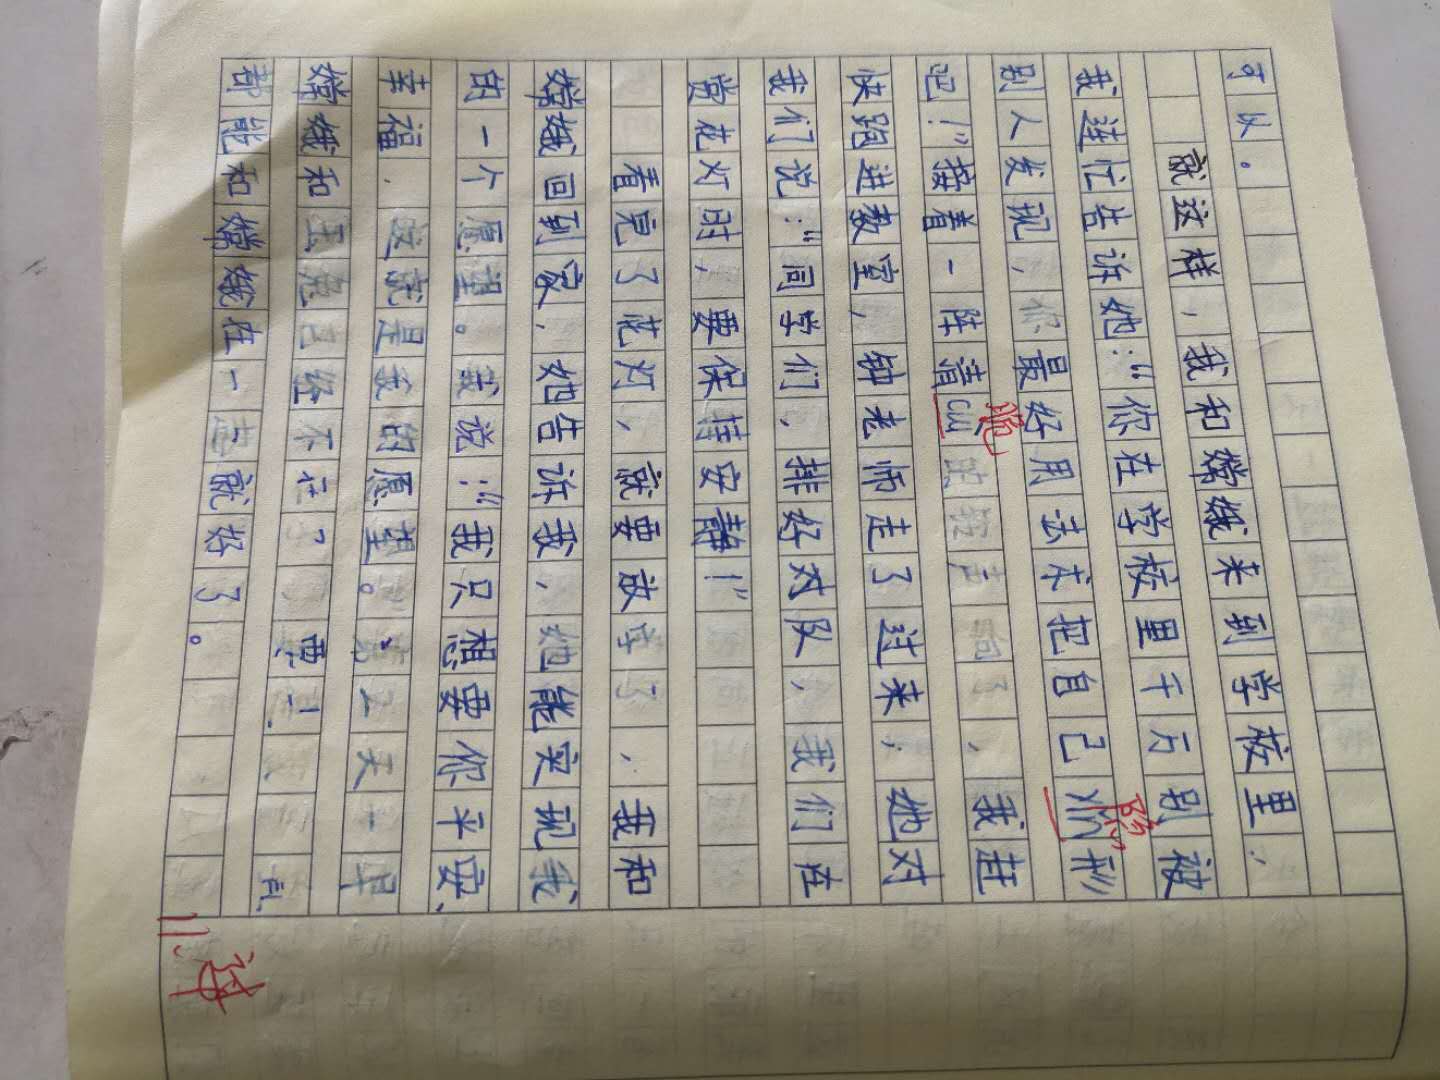 可以。
就这样，我和嫦娥来到学校里，
我连忙告诉她：“你在学校里千万别被
别人发现，你最好用法术把自己yǐn形
隐
吧！”接着一阵清cuì的铃声响了，我赶
脆
快跑进教室，钟老师走了过来，她对
我们说：“同学们，排好对队，我们在
赏花灯时，要保持安静！”
看完了花灯，就要放学了，我和
嫦娥回到家，她告诉我，她能实现我
的一个愿望。我说：“我只想要你平安、
幸福，这就是我的愿望。”天一早
嫦娥和玉兔已经不在了要
都能和嫦娥在一起就好了。
11.